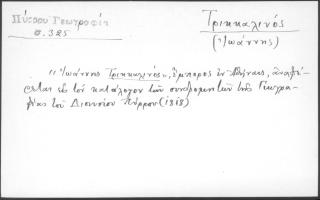 Πύρρου Γεωγραφία
σ. 325
Τρικκαλινός
(Ἰωάννης)
"Ἰωάννης Τρικκαλινός", ἔμπορος ἐν Ἀθήναις, ἀναφέ-
ρεται εἰς τὸν κατάλογον τῶν συνδρομητῶν τῆς Γεωγρα-
φίας τοῦ Διονυσίου Πύρρου (1818)